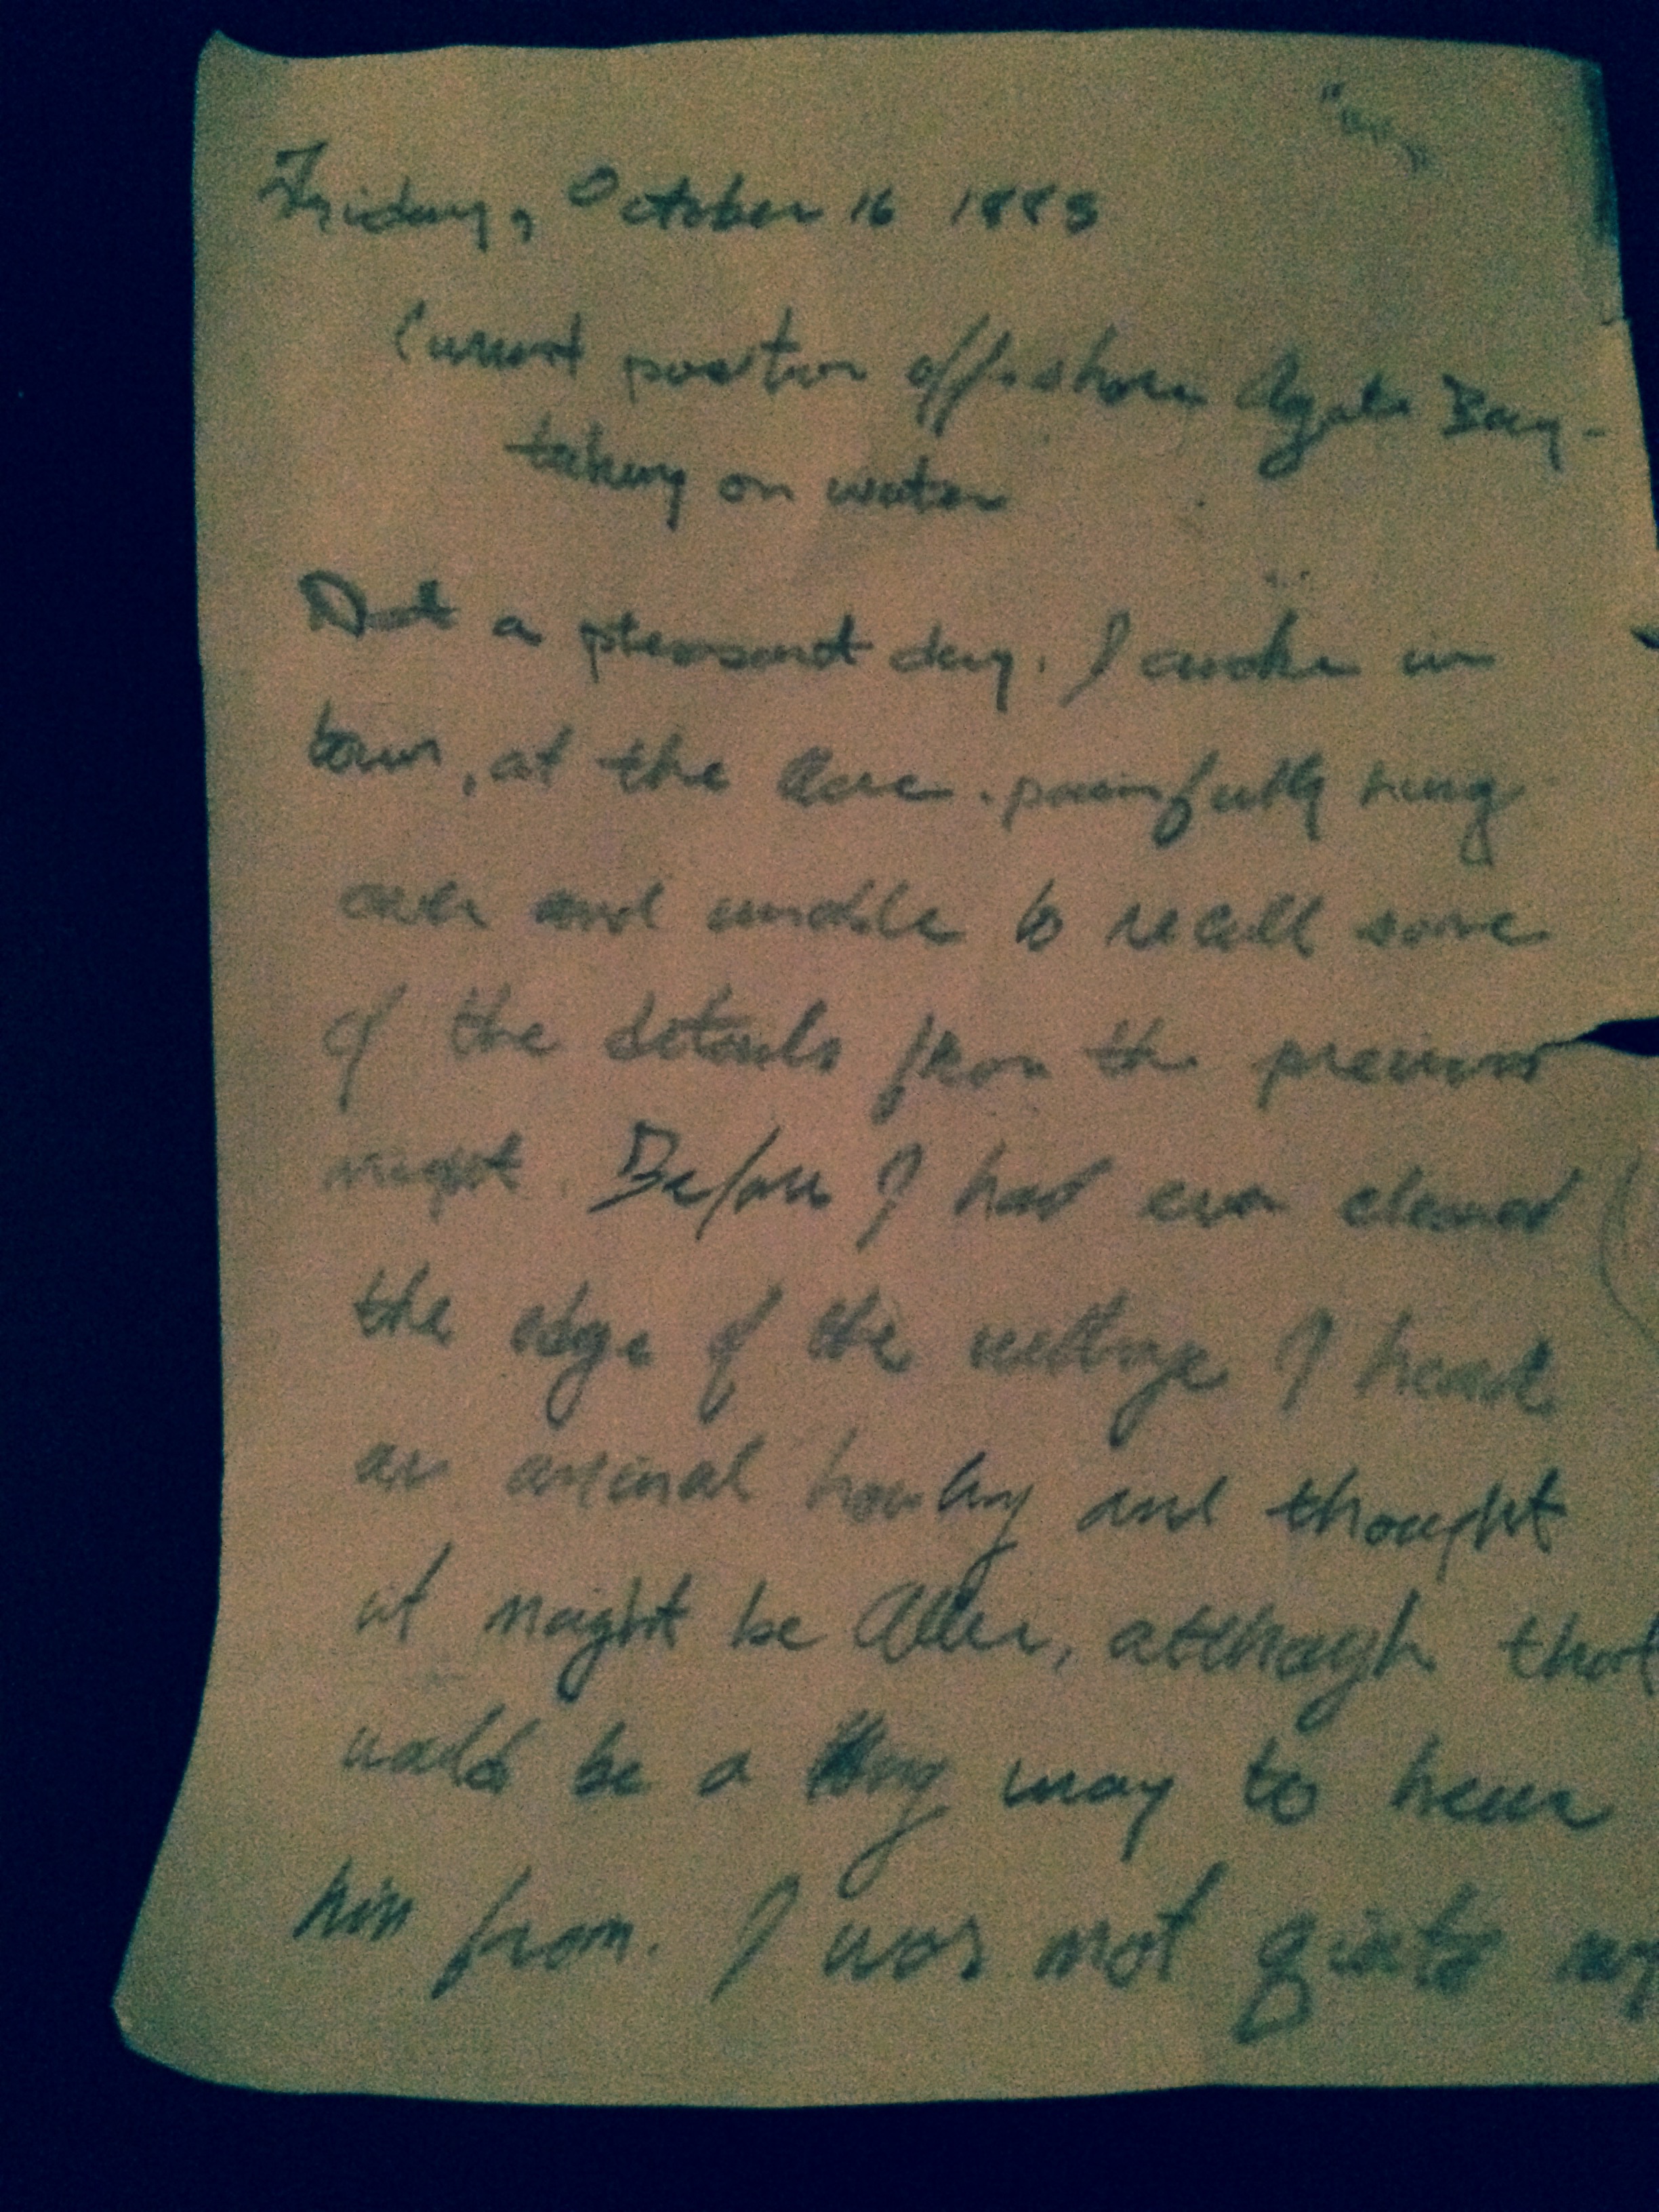 Friday, October 16 1885
Current position offshore Agate Bay -
taking on water
Not a pleasant day. I awoke in
town, at the painfully hung
over and unable to recall some
of the details from the previous
night. Before I had even cleared
the edge of the village I heard
an animal howling and thought
it might be although that
would be a long way to hear
him from. I was not quite my